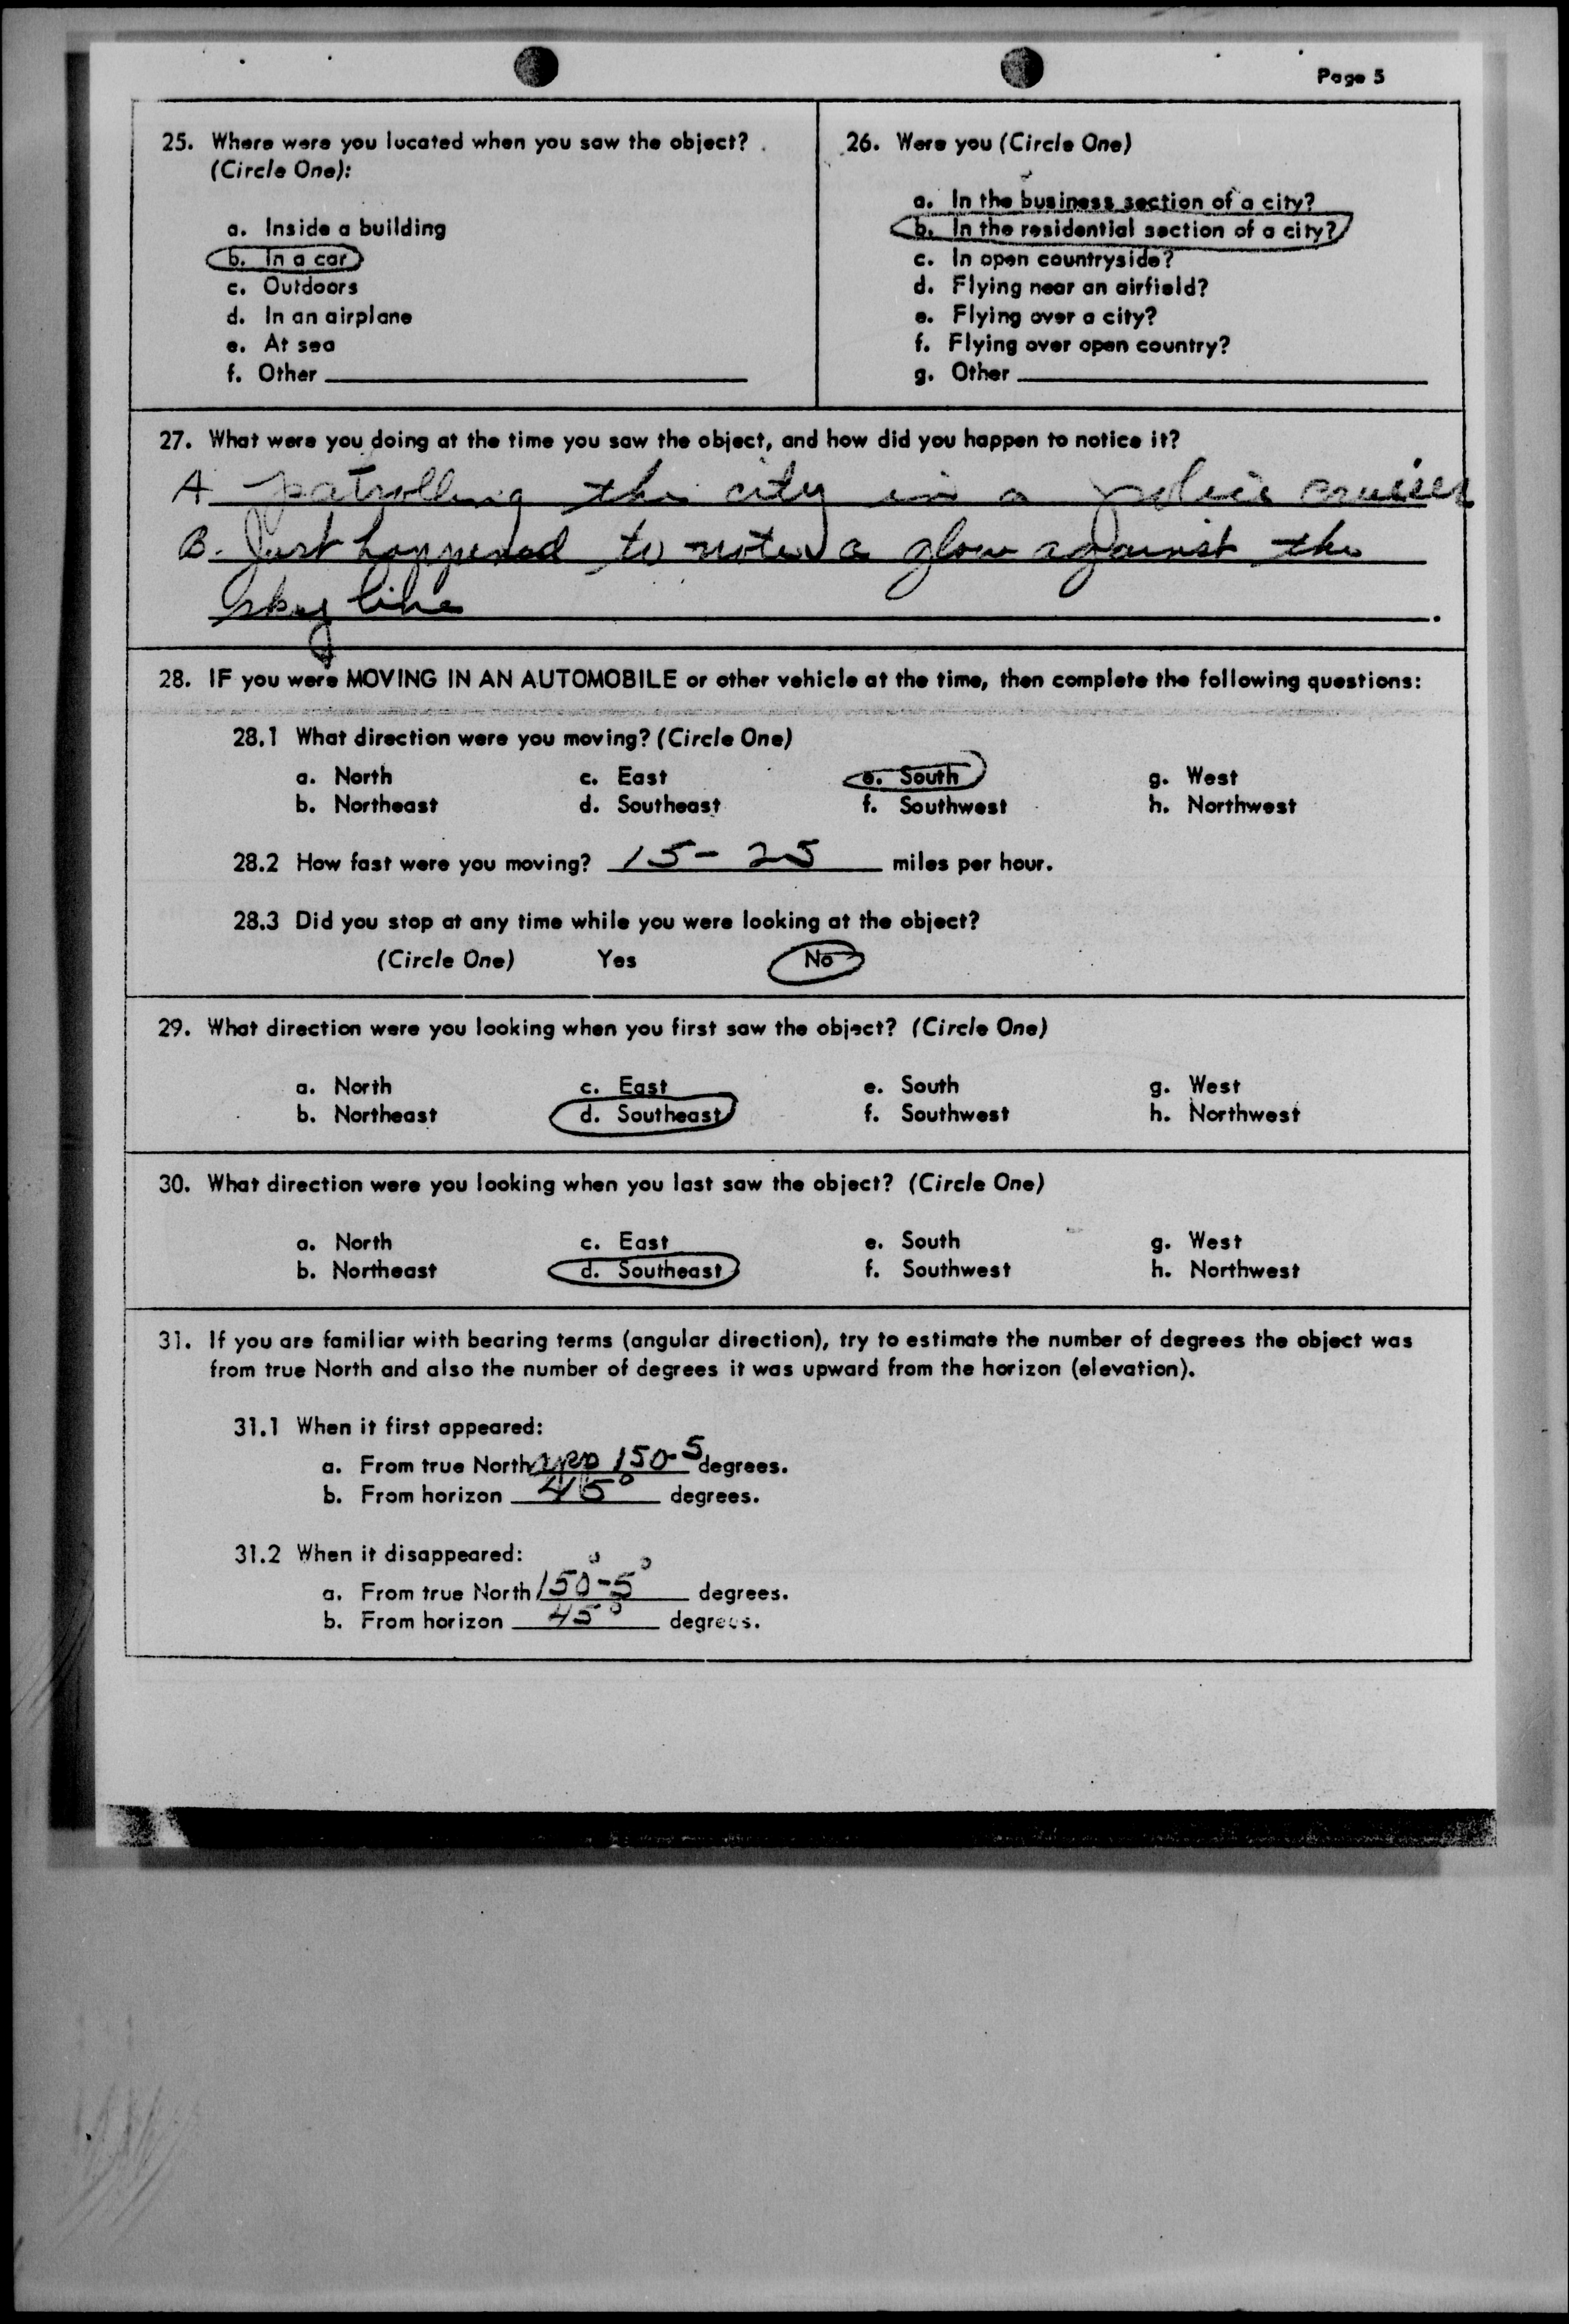 Page 5
25. Where were you located when you saw the object?
(Circle One):
a. Inside a building
b. In a car
c. Outdoors
d. In an airplane
e. At sea
f. Other
26. Were you (Circle One)
a. In the business section of a city?
b. In the residential section of a city?
c. In open countryside?
d. Flying near an airfield?
e. Flying over a city?
f. Flying over open country?
g. Other
27. What were you doing at the time you saw the object, and how did you happen to notice it?
A. patrolling the city in a police cruiser
B. Just happened to a glow against the
sky line
28. IF you were MOVING IN AN AUTOMOBILE or other vehicle at the time, then complete the following questions:
28.1 What direction were you moving? (Circle One)
a. North c. East e. South g. West
b. Northeast d. Southeast f. Southwest h. Northwest
28.2 How fast were you moving? 15 - 25 miles per hour.
28.3 Did you stop at any time while you were looking at the object?
(Circle One) Yes No
29. What direction were you looking when you first saw the object? (Circle One)
a. North c. East e. South g. West
b. Northeast d. Southeast f. Southwest h. Northwest
30. What direction were you looking when you last saw the object? (Circle One)
a. North c. East e. South g. West
b. Northeast d. Southeast f. Southwest h. Northwest
31. If you are familiar with bearing terms (angular direction), try to estimate the number of degrees the object was
from true North and also the number of degrees it was upward from the horizon (elevation).
31.1 When it first appeared:
a. From true North 150-5 degrees.
b. From horizon 45° degrees.
31.2 When it disappeared:
a. From true North 150°-5° degrees.
b. From horizon 45° degrees.